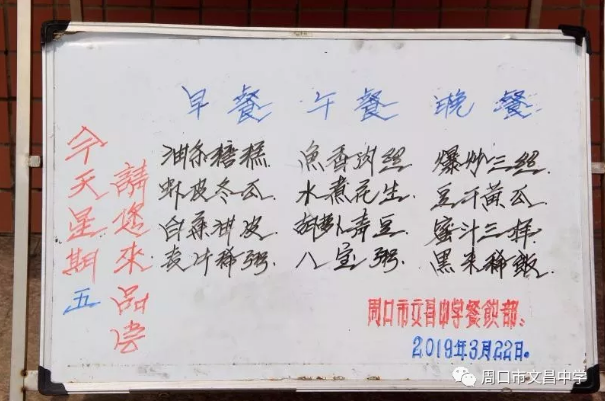 早餐 午餐 晚餐
今天星期五
請您來品尝
油条糖糕 魚香肉丝 爆炒三丝
虾皮冬瓜. 水煮花生 豆干黄瓜.
白菜拌皮 胡萝卜青豆
麦片稀粥. 八宝粥. 黑米稀飯.
周口市文昌中学餐飲部.
2019年3月22日.
周口市文昌中学